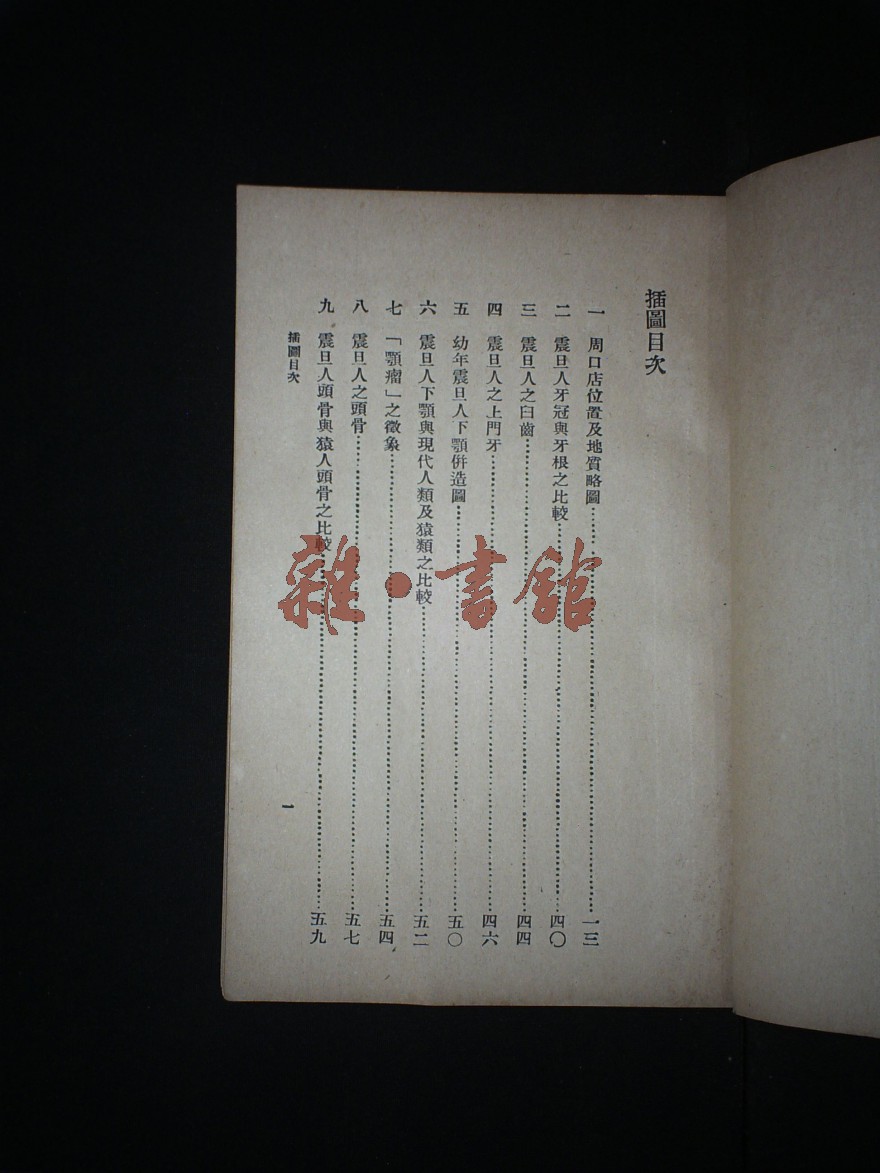 插圖目次
一 周口店位置及地質略圖……一三
二 震旦人牙冠與牙根之比較……四〇
三 震旦人之臼齒……四四
四 震旦人之上門牙……四六
五 幼年震旦人下顎併造圖……五〇
六 震旦人下顎與現代人類及猿類之比較……五二
七 「顎瘤」之徵象……五四
八 震旦人之頭骨……五七
九 震旦人頭骨與猿人頭骨之比較……五九
插圖目次
一
雜·書館